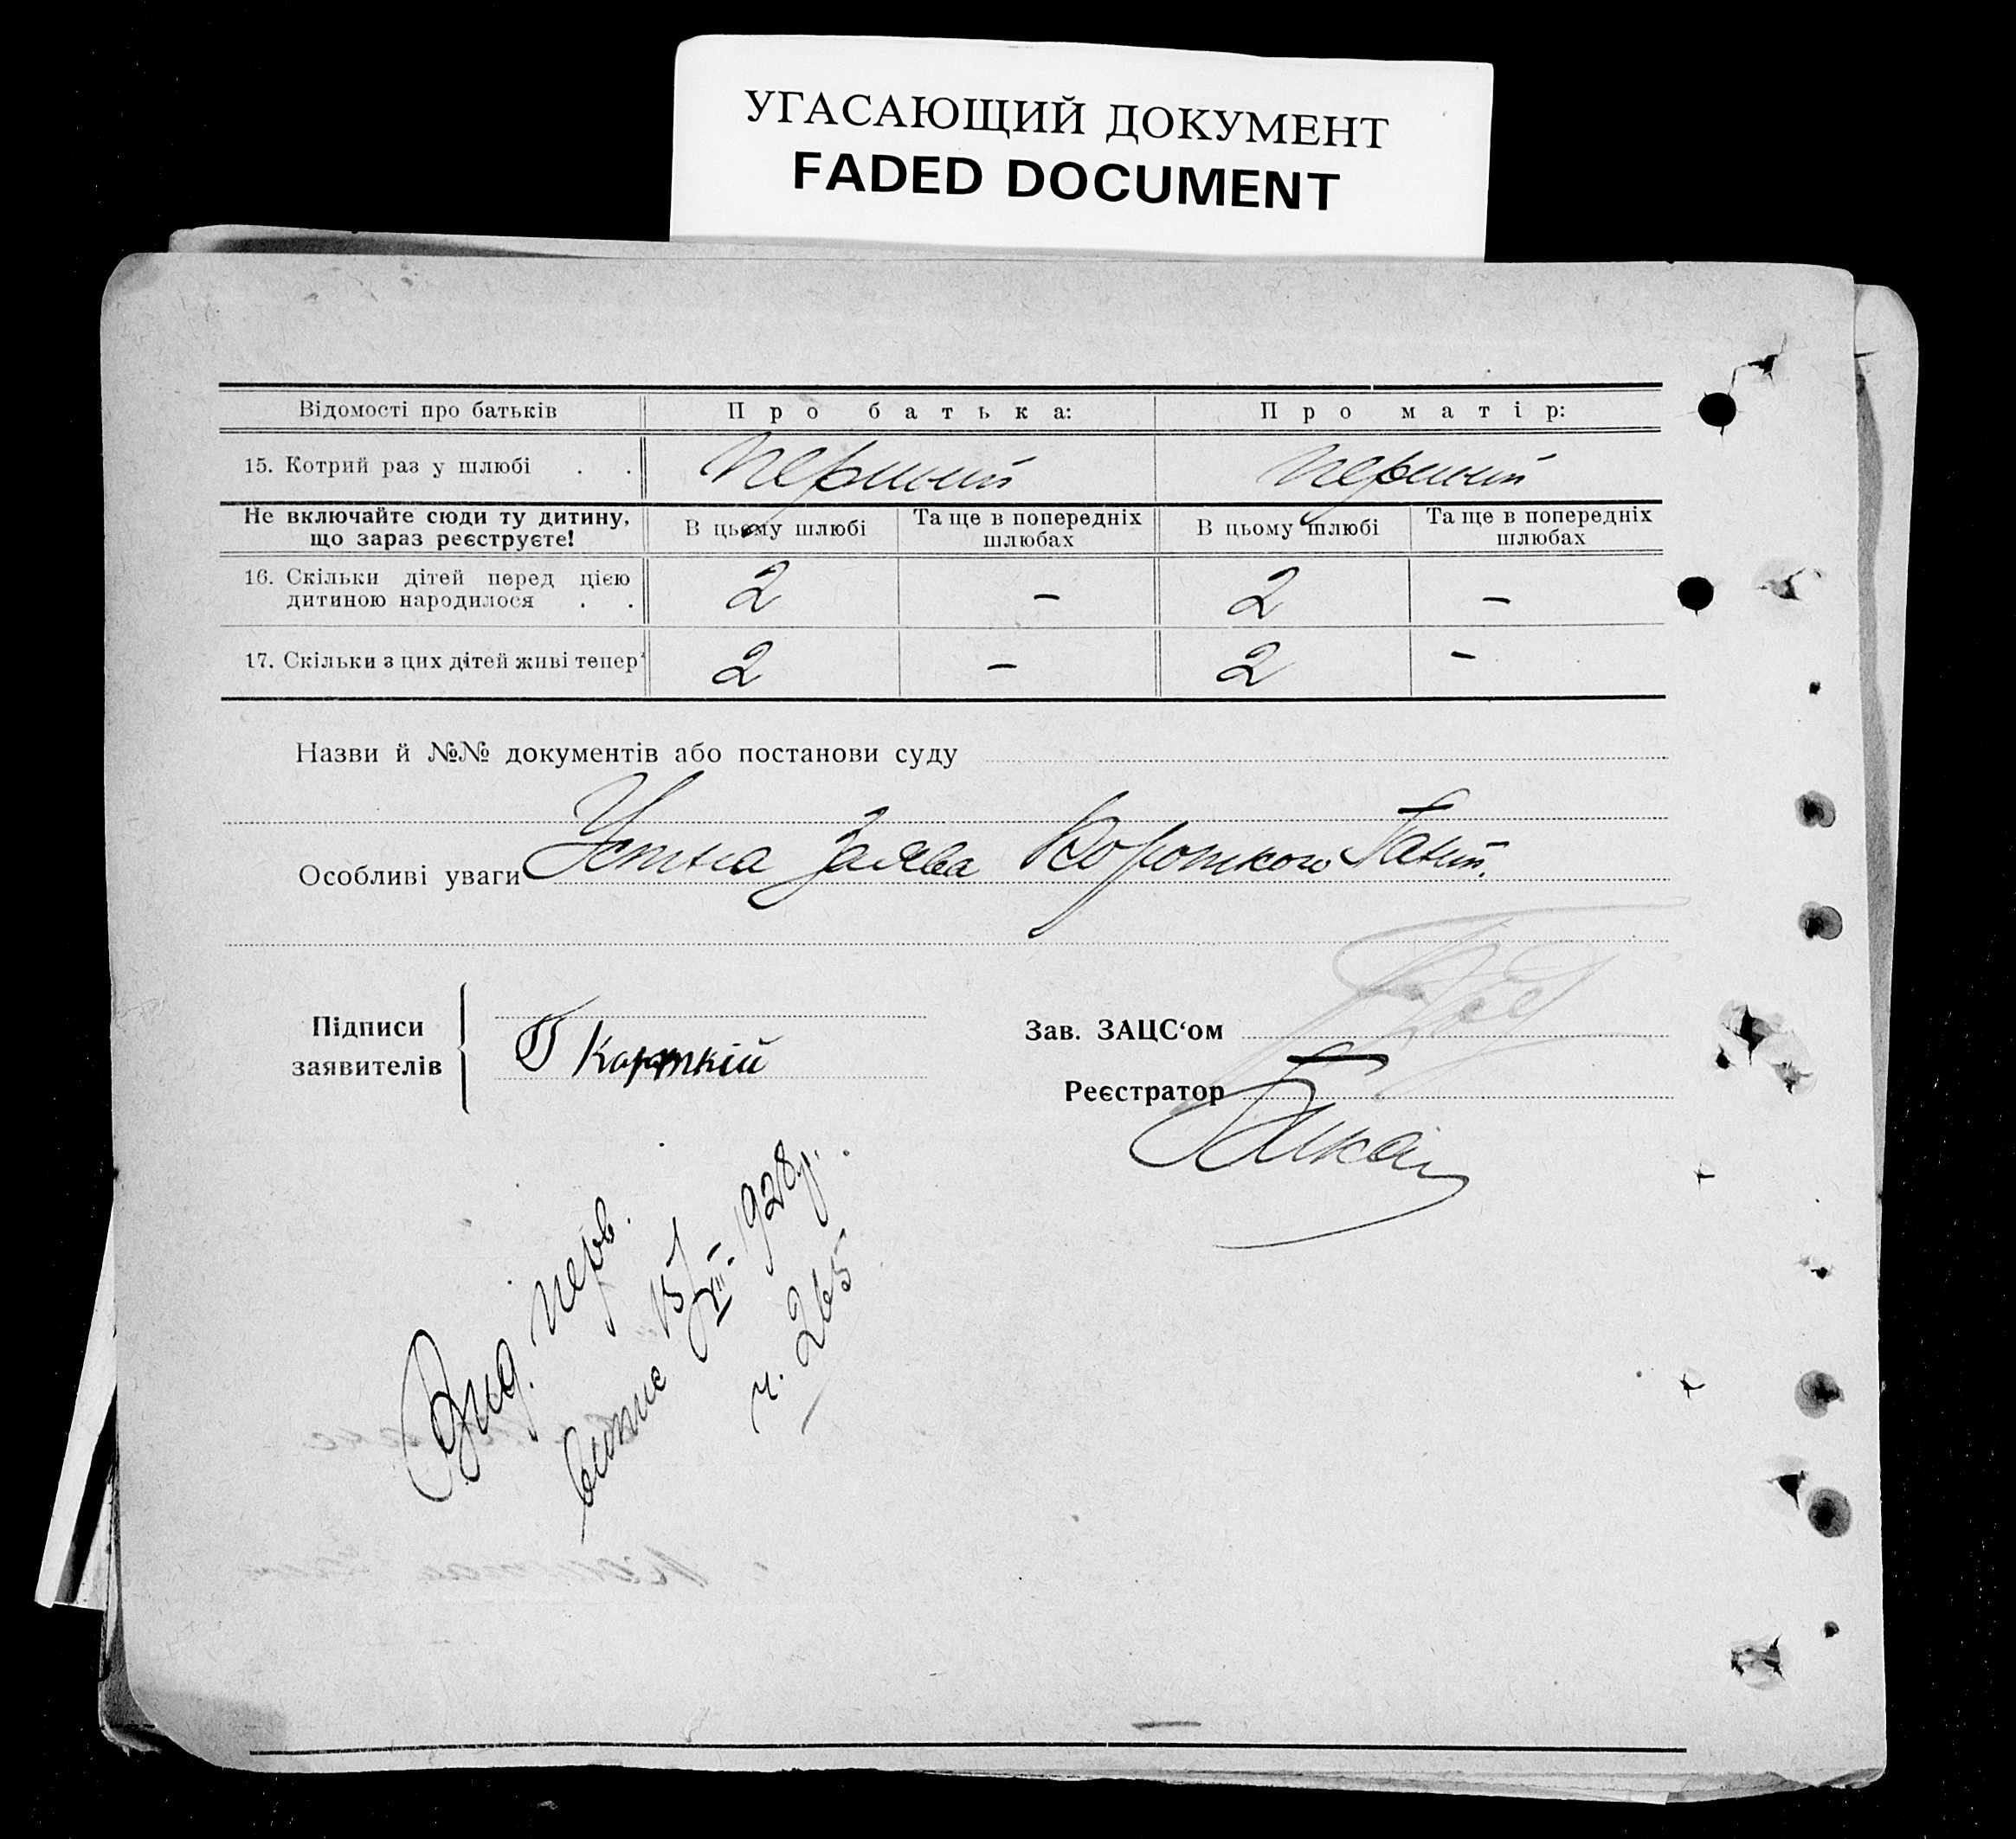 УГАСАЮЩИЙ ДОКУМЕНТ
FADED DOCUMENT
Відомості про батьків Про батька: Про матір:
15. Котрий раз у шлюбі . . перший перший
Не включайте сюди ту дитину, що зараз реєструєте! В цьому шлюбі Та ще в попередніх шлюбах В цьому шлюбі Та ще в попередніх шлюбах
16. Скільки дітей перед цією дитиною народилося . . 2 – 2 –
17. Скільки з цих дітей живі тепер 2 – 2 –
Назви й №№ документів або постанови суду
Особливі уваги Устна заява Короткого
Підписи заявителів
Зав. ЗАЦС‘ом
Реєстратор
Вид. перв.
витис 15/VII 1928р.
ч. 265